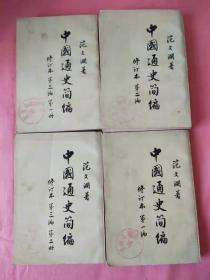 范文澜著
中國通史简编
修订本第三编第一册
范文澜著
中國通史简编
修订本第二编
范文澜著
中國通史简编
修订本第三编第二册
范文澜著
中國通史简编
修订本第一编